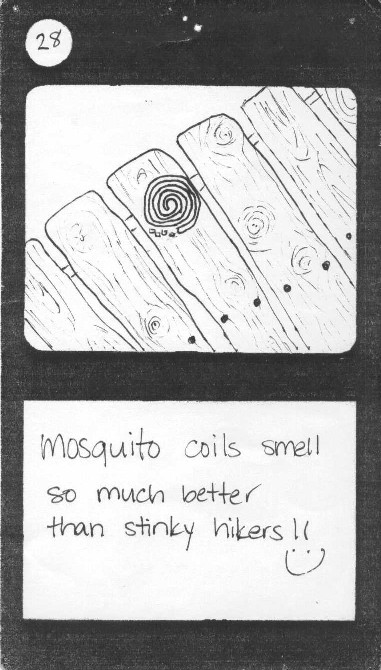 28
Mosquito coils smell
so much better
than stinky hikers!!